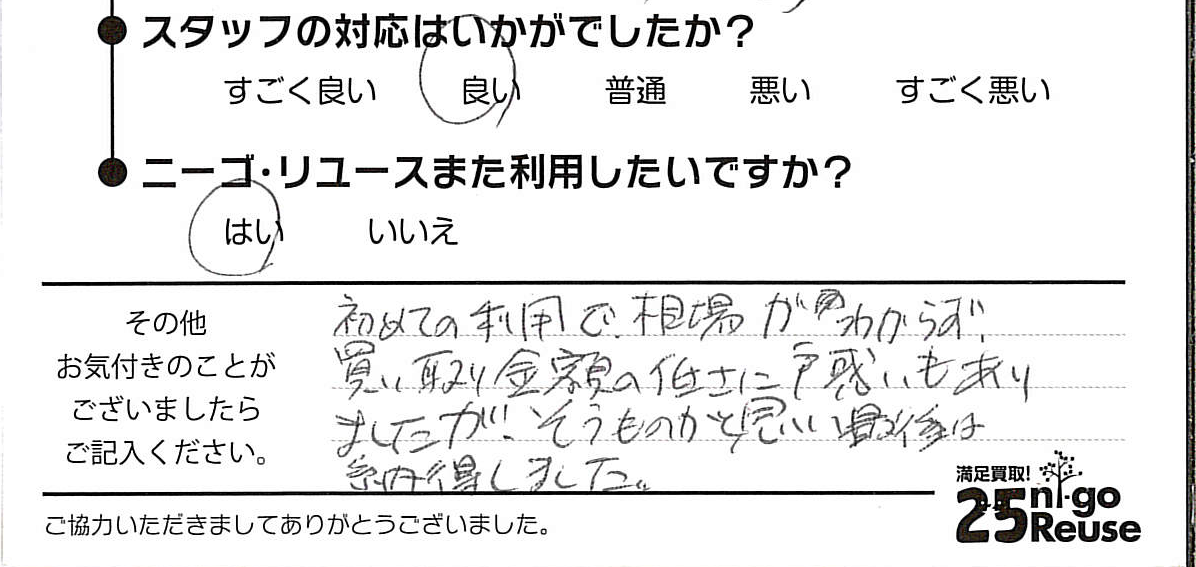 スタッフの対応はいかがでしたか?
すごく良い 良い 普通 悪い すごく悪い
ニーゴ・リユースまた利用したいですか?
はい いいえ
その他
お気付きのことが
ございましたら
ご記入ください。
初めての利用で、相場がわからず、
買い取り金額の低さに戸惑いもあり
ましたが、そうものかと思い最後は
納得しました。
満足買取!
25 ni-go
Reuse
ご協力いただきましてありがとうございました。